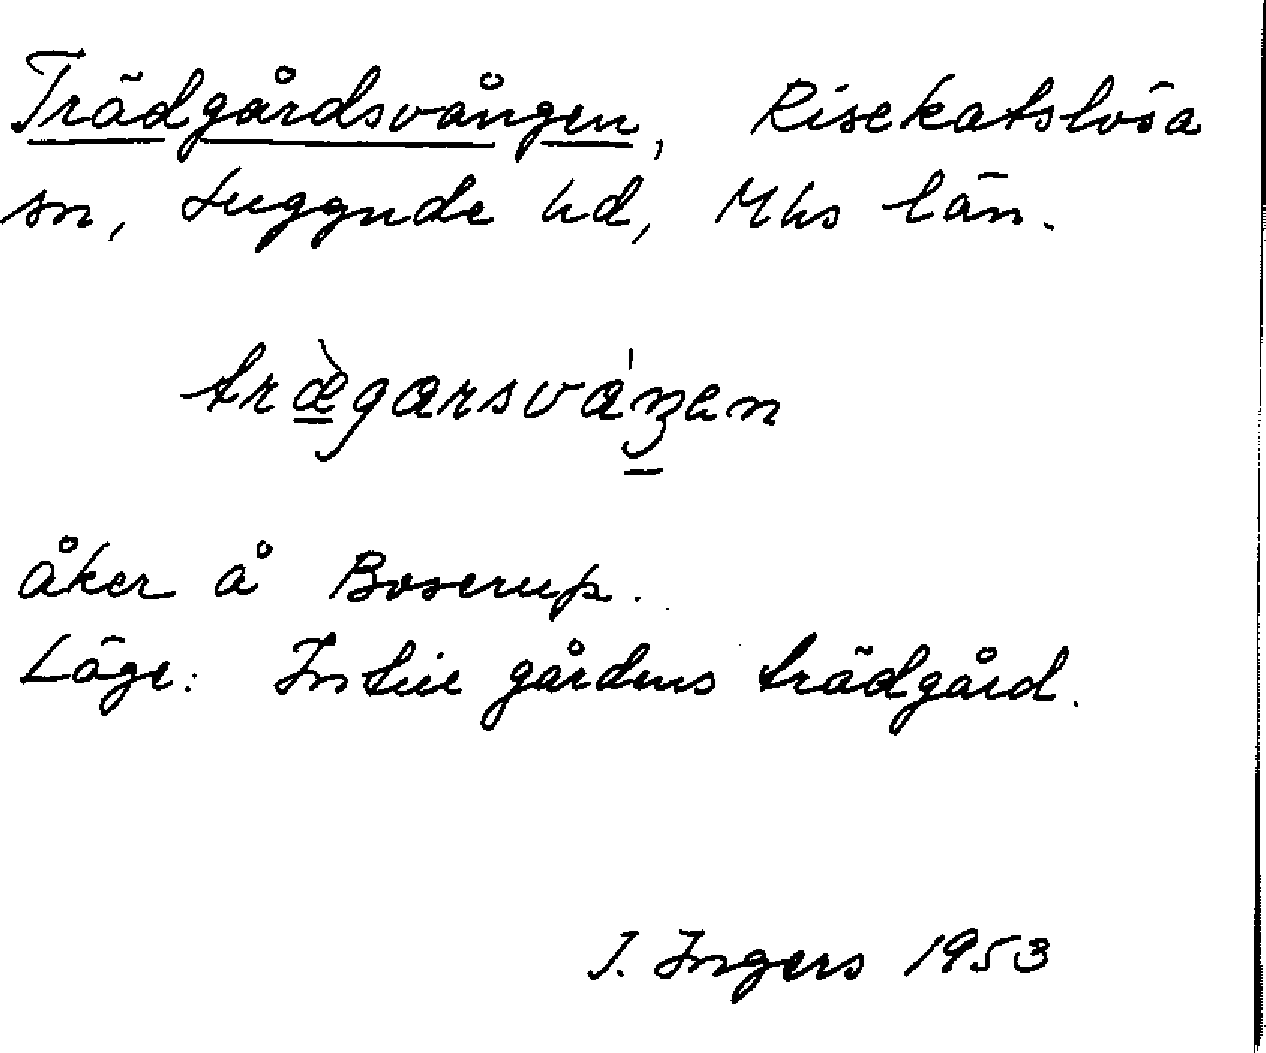 Trädgårdsvången, Risekatslösa
sn, Luggude hd, Mhs län.
træ̀garsváŋen
åker å Boserup.
Läge: Intill gårdens trädgård.
I. Ingers 1953